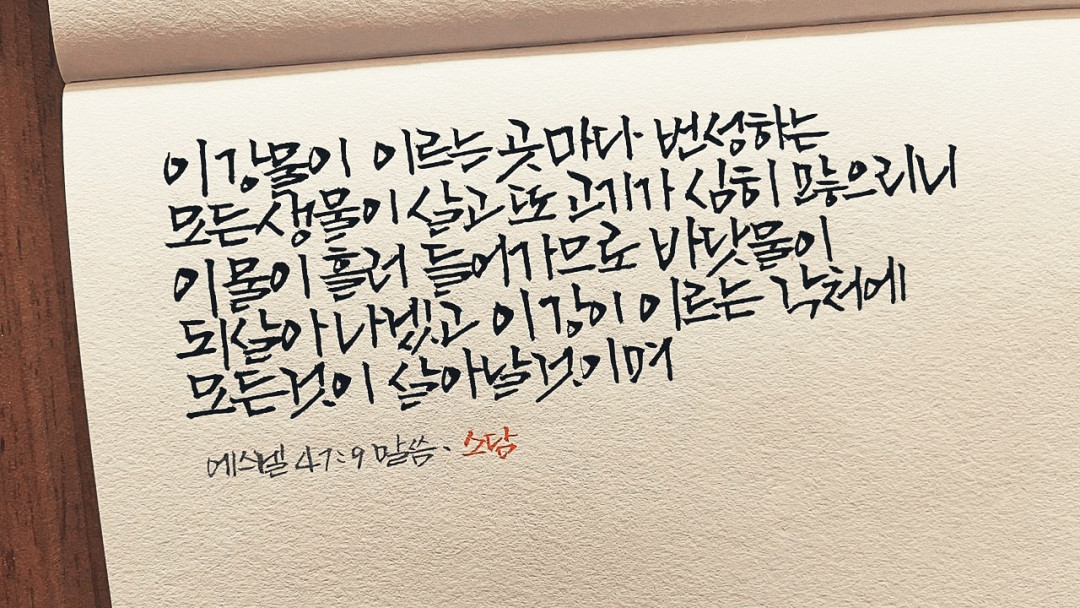 이 강물이 이르는 곳마다 번성하는
모든 생물이 살고 또 고기가 심히 많으리니
이 물이 흘러 들어가므로 바닷물이
되살아나겠고 이 강이 이르는 각처에
모든 것이 살아날 것이며
에스겔 47:9 말씀. 소담